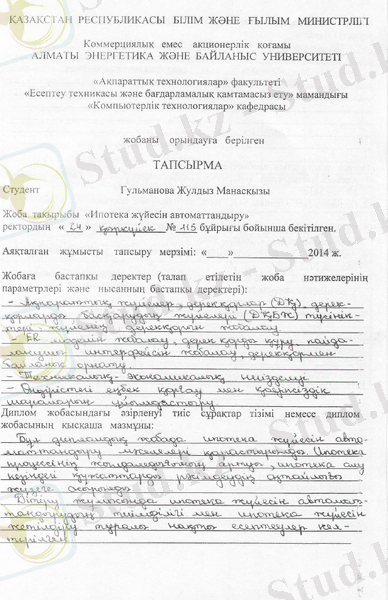 ҚАЗАҚСТАН РЕСПУБЛИКАСЫ БІЛІМ ЖӘНЕ ҒЫЛЫМ МИНИСТРЛІГІ
Коммерциялық емес акционерлік қоғамы
АЛМАТЫ ЭНЕРГЕТИКА ЖӘНЕ БАЙЛАНЫС УНИВЕРСИТЕТІ
«Ақпараттық технологиялар» факультеті
«Есептеу техникасы және бағдарламалық қамтамасыз ету» мамандығы
«Компьютерлік технологиялар» кафедрасы
жобаны орындауға берілген
ТАПСЫРМА
Студент Гульманова Жулдыз Манасқызы
Жоба тақырыбы «Ипотека жүйесін автоматтандыру»
ректордың « 24 » қыркүйек № 115 бұйрығы бойынша бекітілген.
Аяқталған жұмысты тапсыру мерзімі: «___» ____________2014 ж.
Жобаға бастапқы деректер (талап етілетін жоба нәтижелерінің
параметрлері және нысанның бастапқы деректері):
- Ақпараттық жүйелер, дерекқорлар (ДҚ), дерек-
қорларды басқарудың жүйелері (ДҚБЖ) түсінік-
тері, жүйенің дерекқорын жобалау
ER моделін жобалау, дерекқорды құру, пайда-
ланушы интерфейсін жобалау, дерекқормен
байланыс орнату.
- Техникалық-экономикалық негіздеме
- Өндірістегі еңбек қорғау мен қауіпсіздік
шараларын ұйымдастыру.
Диплом жобасындағы әзірленуі тиіс сұрақтар тізімі немесе диплом
жобасының қысқаша мазмұны:
Бұл дипломдық жобада ипотека жүйесін авто-
маттандыру мәселелері қарастырылды. Ипотека
процесінің жылдамдығының артуы, ипотека алу
кезіндегі құжаттарды рәсімдеудің оңтайлығы
жүзеге асырылды.
Бітіру жұмысында ипотека жүйесін автомат-
тандырудың тиімділігі мен ипотека жүйесін
жетілдіру туралы нақты есептеулер кел-
тірілген.
Stud.kz
Stud.kz
Stud.kz